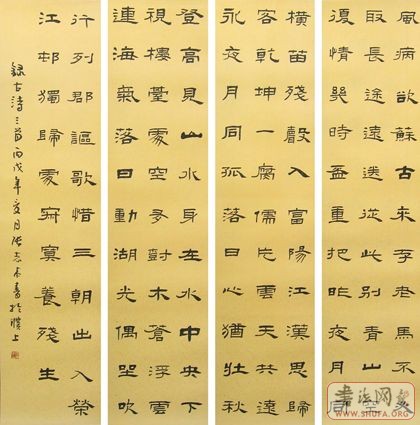 登高見山水身在水中央下
視樓臺處空多樹木蒼浮雲
連海氣落日動湖光偶坐吹
橫笛殘聲入富陽江漢思歸
客乾坤一腐儒片雲天共遠
永夜月同孤落日心猶壯秋
風病欲蘇古來存老馬不必
取長途遠送從此別青山空
復情幾時盃重把昨夜月同
行列郡謳歌惜三朝出入榮
江邨獨歸處寂寞養殘生
錄古詩三首丙戌年夏月張志本書於濮上
WWW.SHUFA.ORG